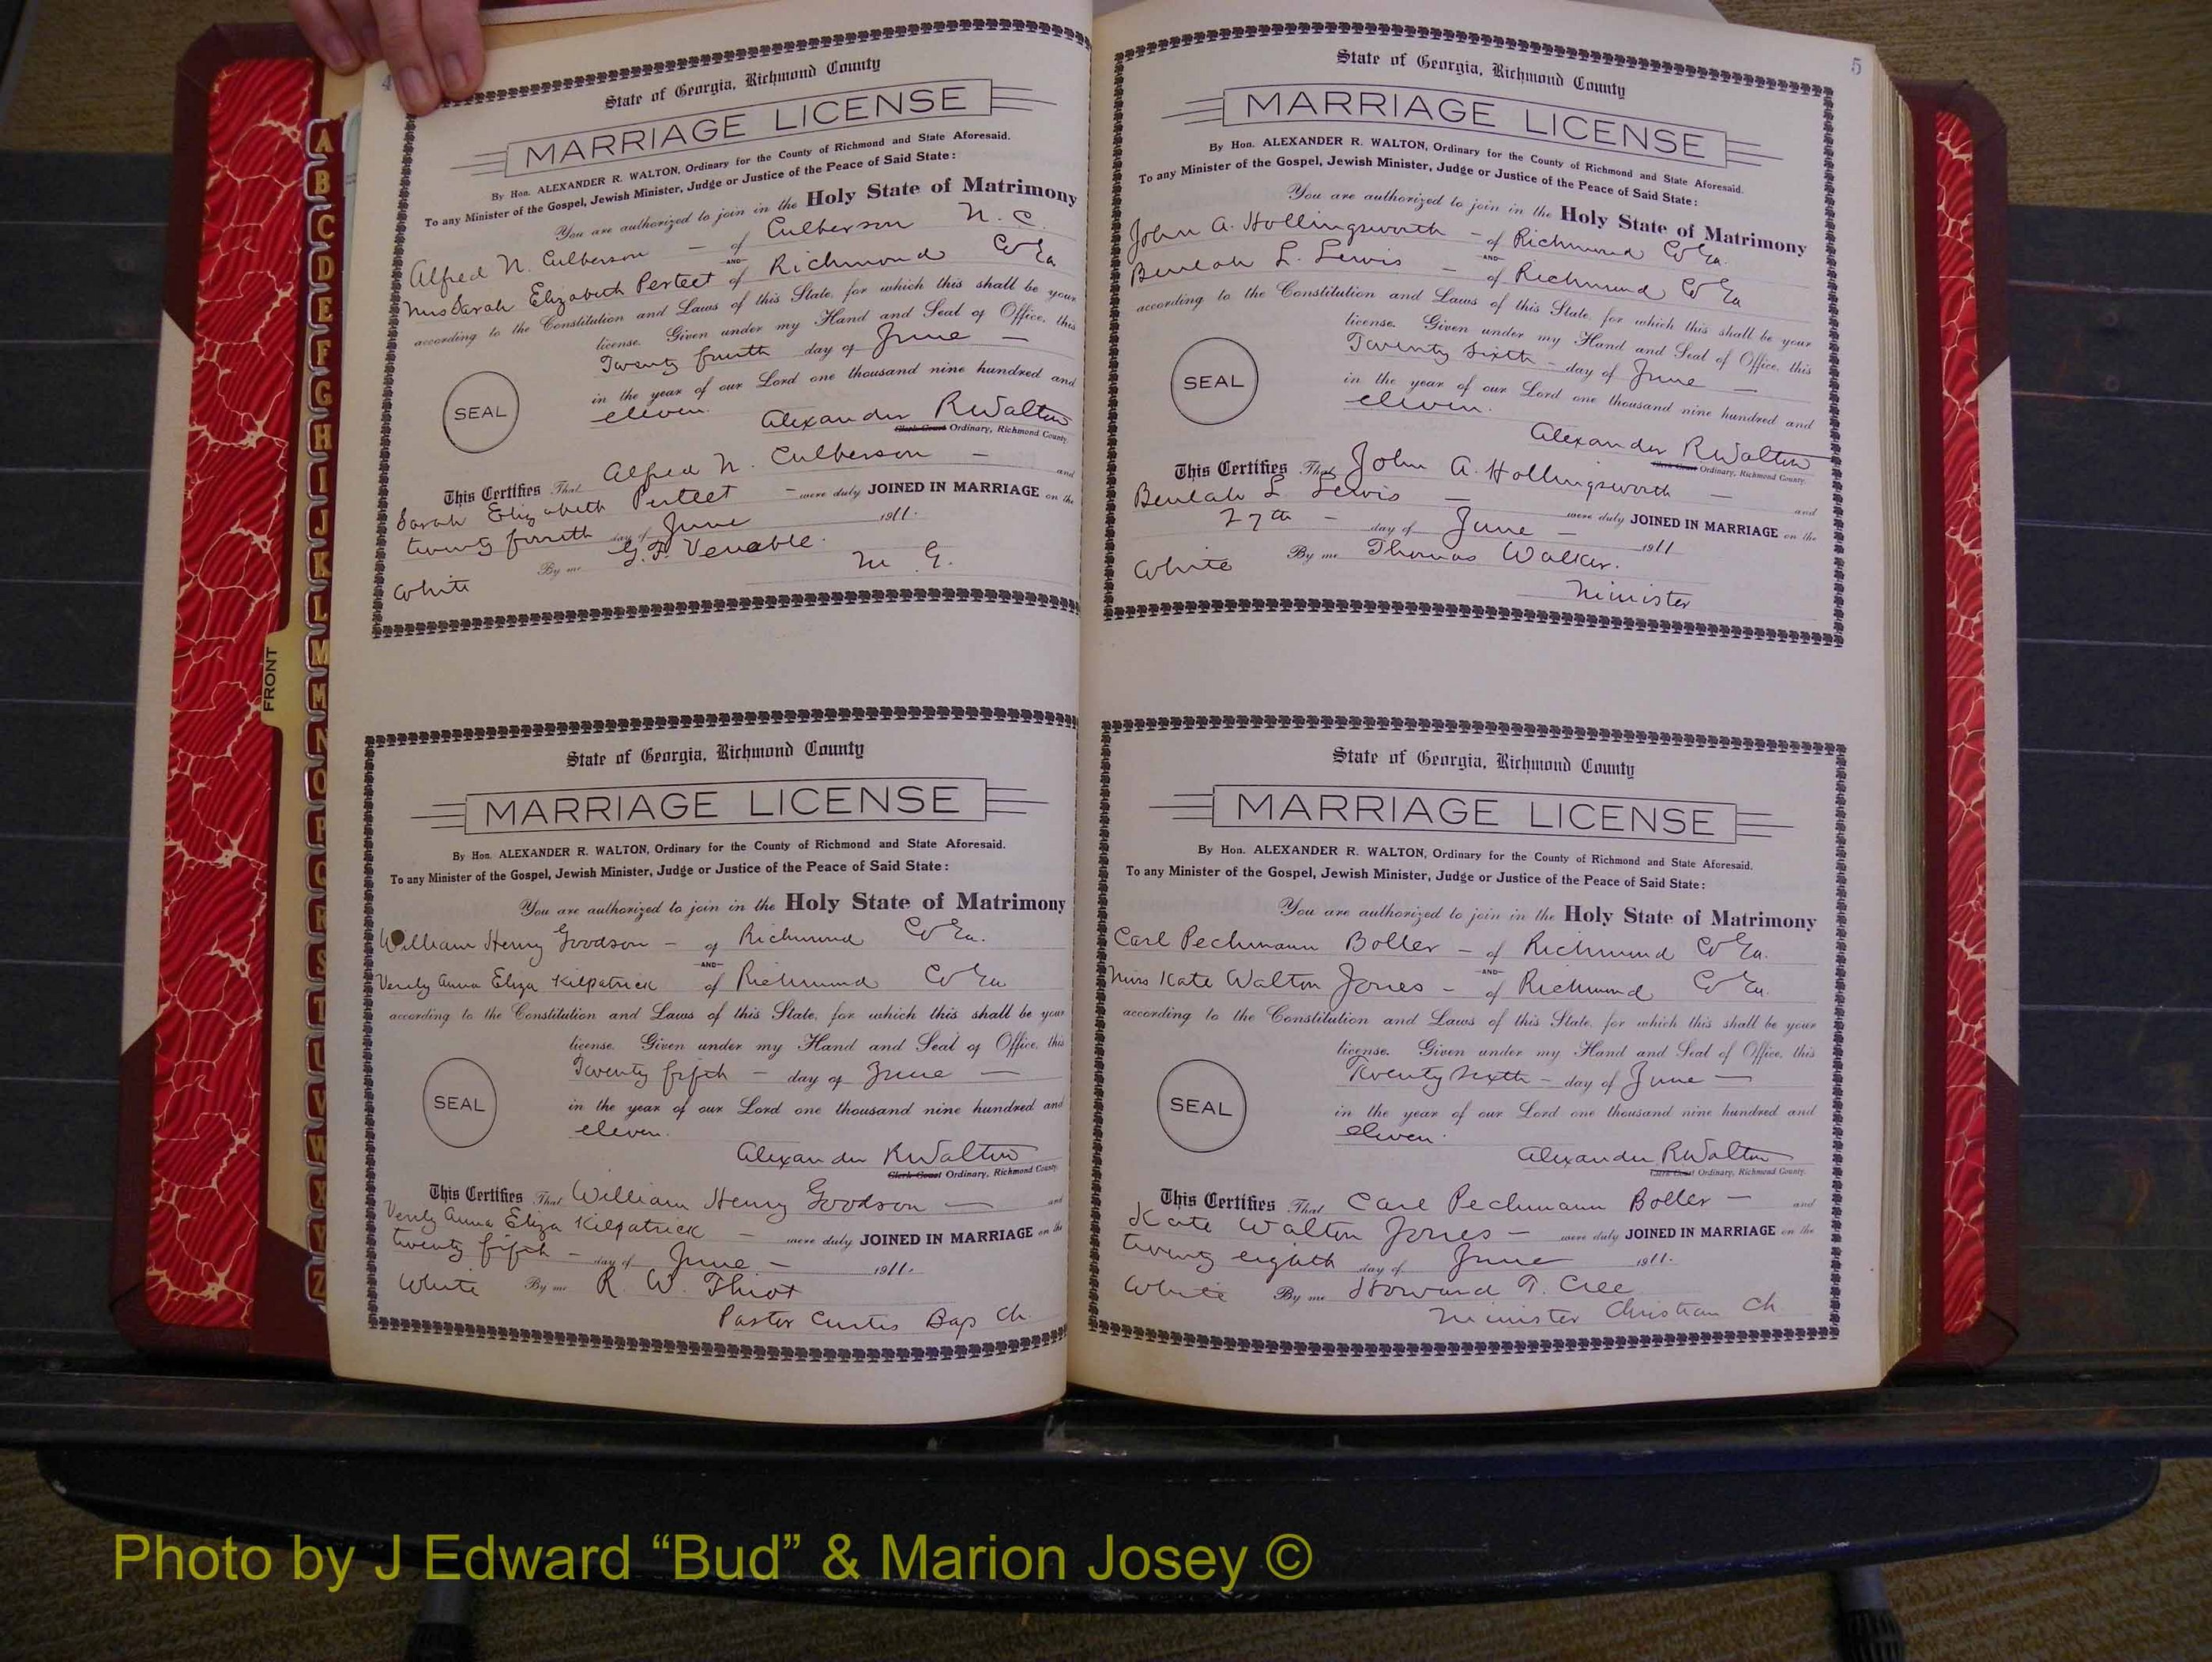 4
State of Georgia, Richmond County
MARRIAGE LICENSE
By Hon. ALEXANDER R. WALTON, Ordinary for the County of Richmond and State Aforesaid.
To any Minister of the Gospel, Jewish Minister, Judge or Justice of the Peace of Said State:
You are authorized to join in the Holy State of Matrimony
Alfred N. Culberson — of Culberson N. C.
AND
Miss Sarah Elizabeth Perteet of Richmond Co Ga
according to the Constitution and Laws of this State, for which this shall be your
license. Given under my Hand and Seal of Office, this
Twenty fourth day of June —
in the year of our Lord one thousand nine hundred and
eleven.
SEAL
Alexander R Walton
Clerk Court Ordinary, Richmond County.
This Certifies That Alfred N. Culberson — and
Sarah Elizabeth Perteet — were duly JOINED IN MARRIAGE on the
twenty fourth day of June 1911.
By me G. F. Venable.
White M. G.
State of Georgia, Richmond County
MARRIAGE LICENSE
By Hon. ALEXANDER R. WALTON, Ordinary for the County of Richmond and State Aforesaid.
To any Minister of the Gospel, Jewish Minister, Judge or Justice of the Peace of Said State:
You are authorized to join in the Holy State of Matrimony
William Henry Goodson — of Richmond Co Ga.
AND
Verily Anna Eliza Kilpatrick of Richmond Co Ga
according to the Constitution and Laws of this State, for which this shall be your
license. Given under my Hand and Seal of Office, this
Twenty fifth — day of June —
in the year of our Lord one thousand nine hundred and
eleven.
SEAL
Alexander R Walton
Clerk Court Ordinary, Richmond County.
This Certifies That William Henry Goodson — and
Verily Anna Eliza Kilpatrick — were duly JOINED IN MARRIAGE on the
twenty fifth — day of June — 1911.
White By me R. W. Thiot
Pastor Curtis Bap Ch.
5
State of Georgia, Richmond County
MARRIAGE LICENSE
By Hon. ALEXANDER R. WALTON, Ordinary for the County of Richmond and State Aforesaid.
To any Minister of the Gospel, Jewish Minister, Judge or Justice of the Peace of Said State:
You are authorized to join in the Holy State of Matrimony
John A. Hollingsworth — of Richmond Co Ga.
AND
Beulah L. Lewis — of Richmond Co Ga
according to the Constitution and Laws of this State, for which this shall be your
license. Given under my Hand and Seal of Office, this
Twenty Sixth — day of June —
in the year of our Lord one thousand nine hundred and
eleven.
SEAL
Alexander R Walton
Clerk Court Ordinary, Richmond County.
This Certifies That John A. Hollingsworth — and
Beulah L. Lewis — were duly JOINED IN MARRIAGE on the
27th — day of June — 1911
White By me Thomas Walker.
Minister
State of Georgia, Richmond County
MARRIAGE LICENSE
By Hon. ALEXANDER R. WALTON, Ordinary for the County of Richmond and State Aforesaid.
To any Minister of the Gospel, Jewish Minister, Judge or Justice of the Peace of Said State:
You are authorized to join in the Holy State of Matrimony
Carl Pechmann Boller — of Richmond Co Ga.
AND
Miss Kate Walton Jones — of Richmond Co Ga.
according to the Constitution and Laws of this State, for which this shall be your
license. Given under my Hand and Seal of Office, this
Twenty Sixth — day of June —
in the year of our Lord one thousand nine hundred and
eleven.
SEAL
Alexander R Walton
Clerk Court Ordinary, Richmond County.
This Certifies That Carl Pechmann Boller — and
Kate Walton Jones — were duly JOINED IN MARRIAGE on the
twenty eighth day of June 1911.
White By me Howard T. Cree
Minister Christian Ch
FRONT
A
B
C
D
E
F
G
H
I
J
K
L
M
M
N
O
P
Q
R
S
T
U
V
W
X
Y
Z
Photo by J Edward “Bud” & Marion Josey ©